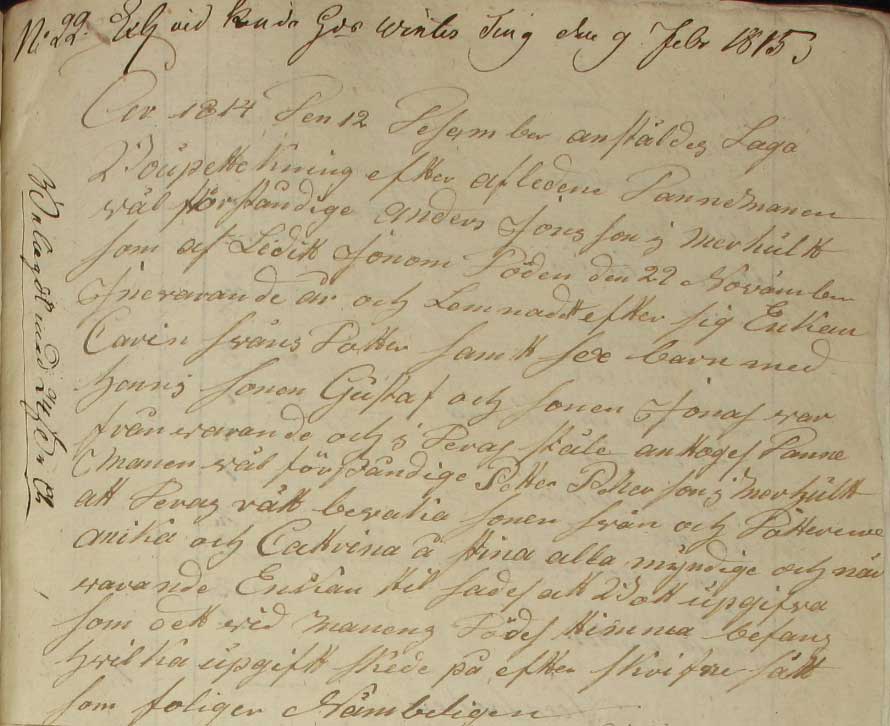 No 22. Exh vid Kinds Hds Winter Ting den 9 Febr 1815
Åer 1814 Den 12 Desember anstäldes Laga
Boüpetekning efter afledene Dannemanen
wäl förståndige Anders Jons son i Merhült
som af Ledit Jenom Döden den 22 Novämber
Jnevarande år och Lemnadt efter sig Enkan
Carin Swäns Dotter samt sex barn med
honnis sonen Güstaf och sonen Jonas war
från warande och i Deras ställe anttoges Danne
Manen wäl förståndige Petter Petter son i Merhült
att Deras rätt bevaka sonen Swän och Dötterene
Anika och Cattrina å Stina alla müdige och när
warande Enkan til sades att Bott üpgifva
som dett wid Manens Dödes timma befans
hwilka üpgift skede på efter skrifne sätt
som foliger Nämbeligen
Belagdt med 24 s